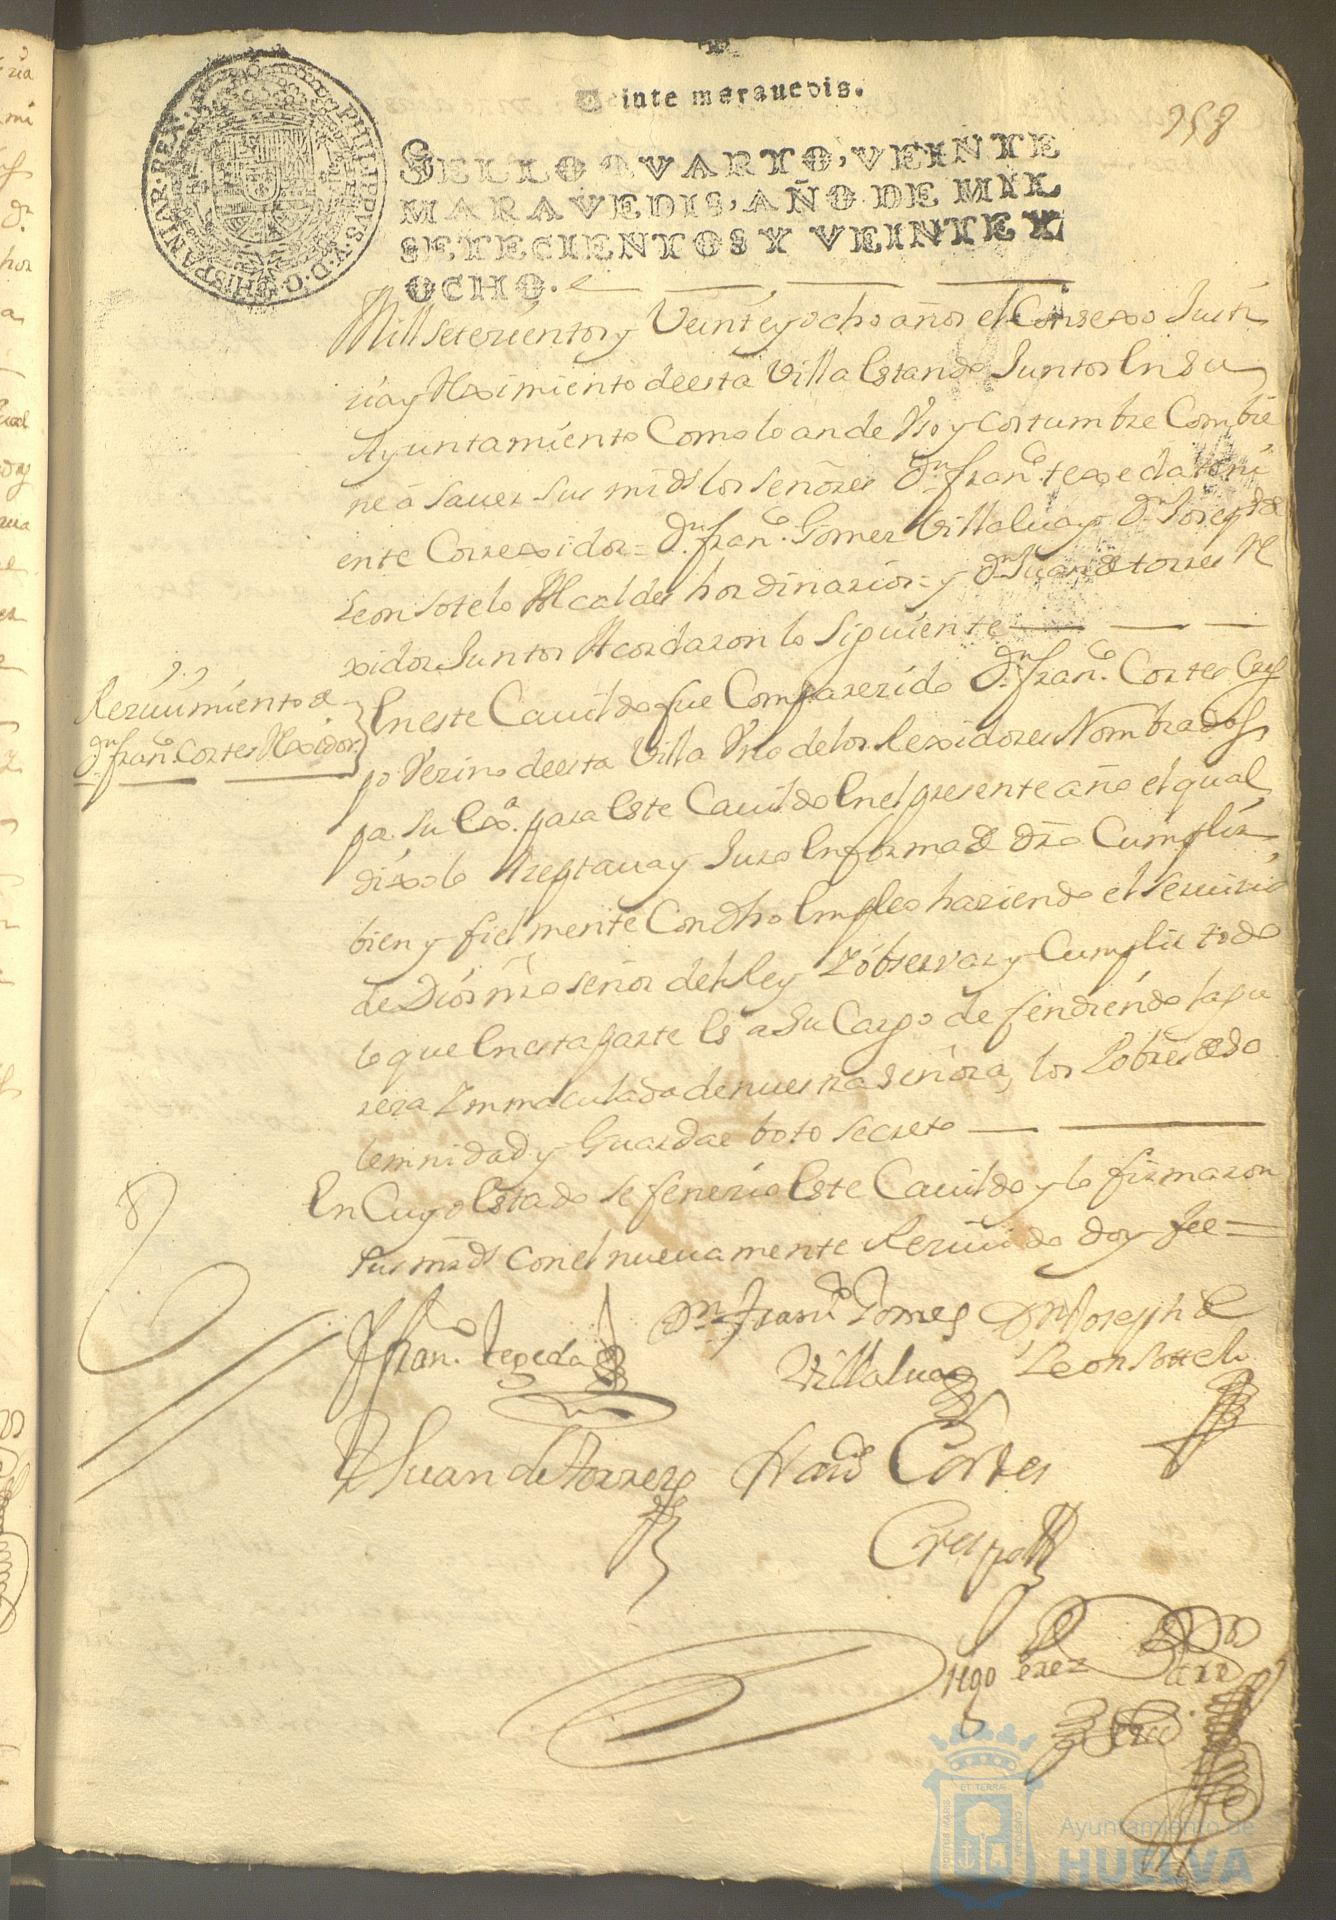 Veinte marauedis.
258
SELLO QVARTO, VEINTE
MARAVEDIS, AÑO DE MIL
SETECIENTOS Y VEINTE Y
OCHO.
PHILIPPVS. V. D. G. HISPANIAR. REX.
Mill setezientos y Veinte y ocho años el Consexo Justi
zia y Reximiento de esta Villa Estando Juntos En su
Ayuntamiento Como lo an de Vso y costumbre Combie
ne a sauer sus mrds los señores Dn. Franco. texeda teni
ente Correxidor = Dn. Franco. Gomez Villalua y Dn. Joseph de
Leon sotelo Alcaldes hordinarios = y Dn. Juan de torres Re
xidor Juntos Acordaron lo siguiente
Reziuimiento de
Dn. Franco. Cortes Rexidor
En este Cauildo fue Comparezido Dn. Franco. Cortes Cres
po Vezino de esta Villa Vno de los Rexidores Nombrados
pr. su Exa. para Este Cauildo En el presente año el qual
dixo lo Azeptaua y Juro En forma de dro Cumplir
bien y fielmente Con dho Empleo haziendo el seruizio
de Dios nro señor del Rey Y observar y Cumplir todo
lo que En esta parte Es a Su Cargo defendiendo la pu
reza Ymmaculada de nuestra señora, los Pobres de so
lemnidad y Guardar boto secreto
En Cuyo Estado se fenezio Este Cauildo y lo firmaron
sus mrds con el nueuamente Reziuido doy fee =
Franco. Tegeda
Dn. Franco. Gomes
Villalua
Dn Joseph de
Leon Sottelo
Juan de Torres
Franco Cortes
Crespo
Perez
ET TERRÆ
PORTUS MARIS
CUSTODIA
Ayuntamiento de
HUELVA